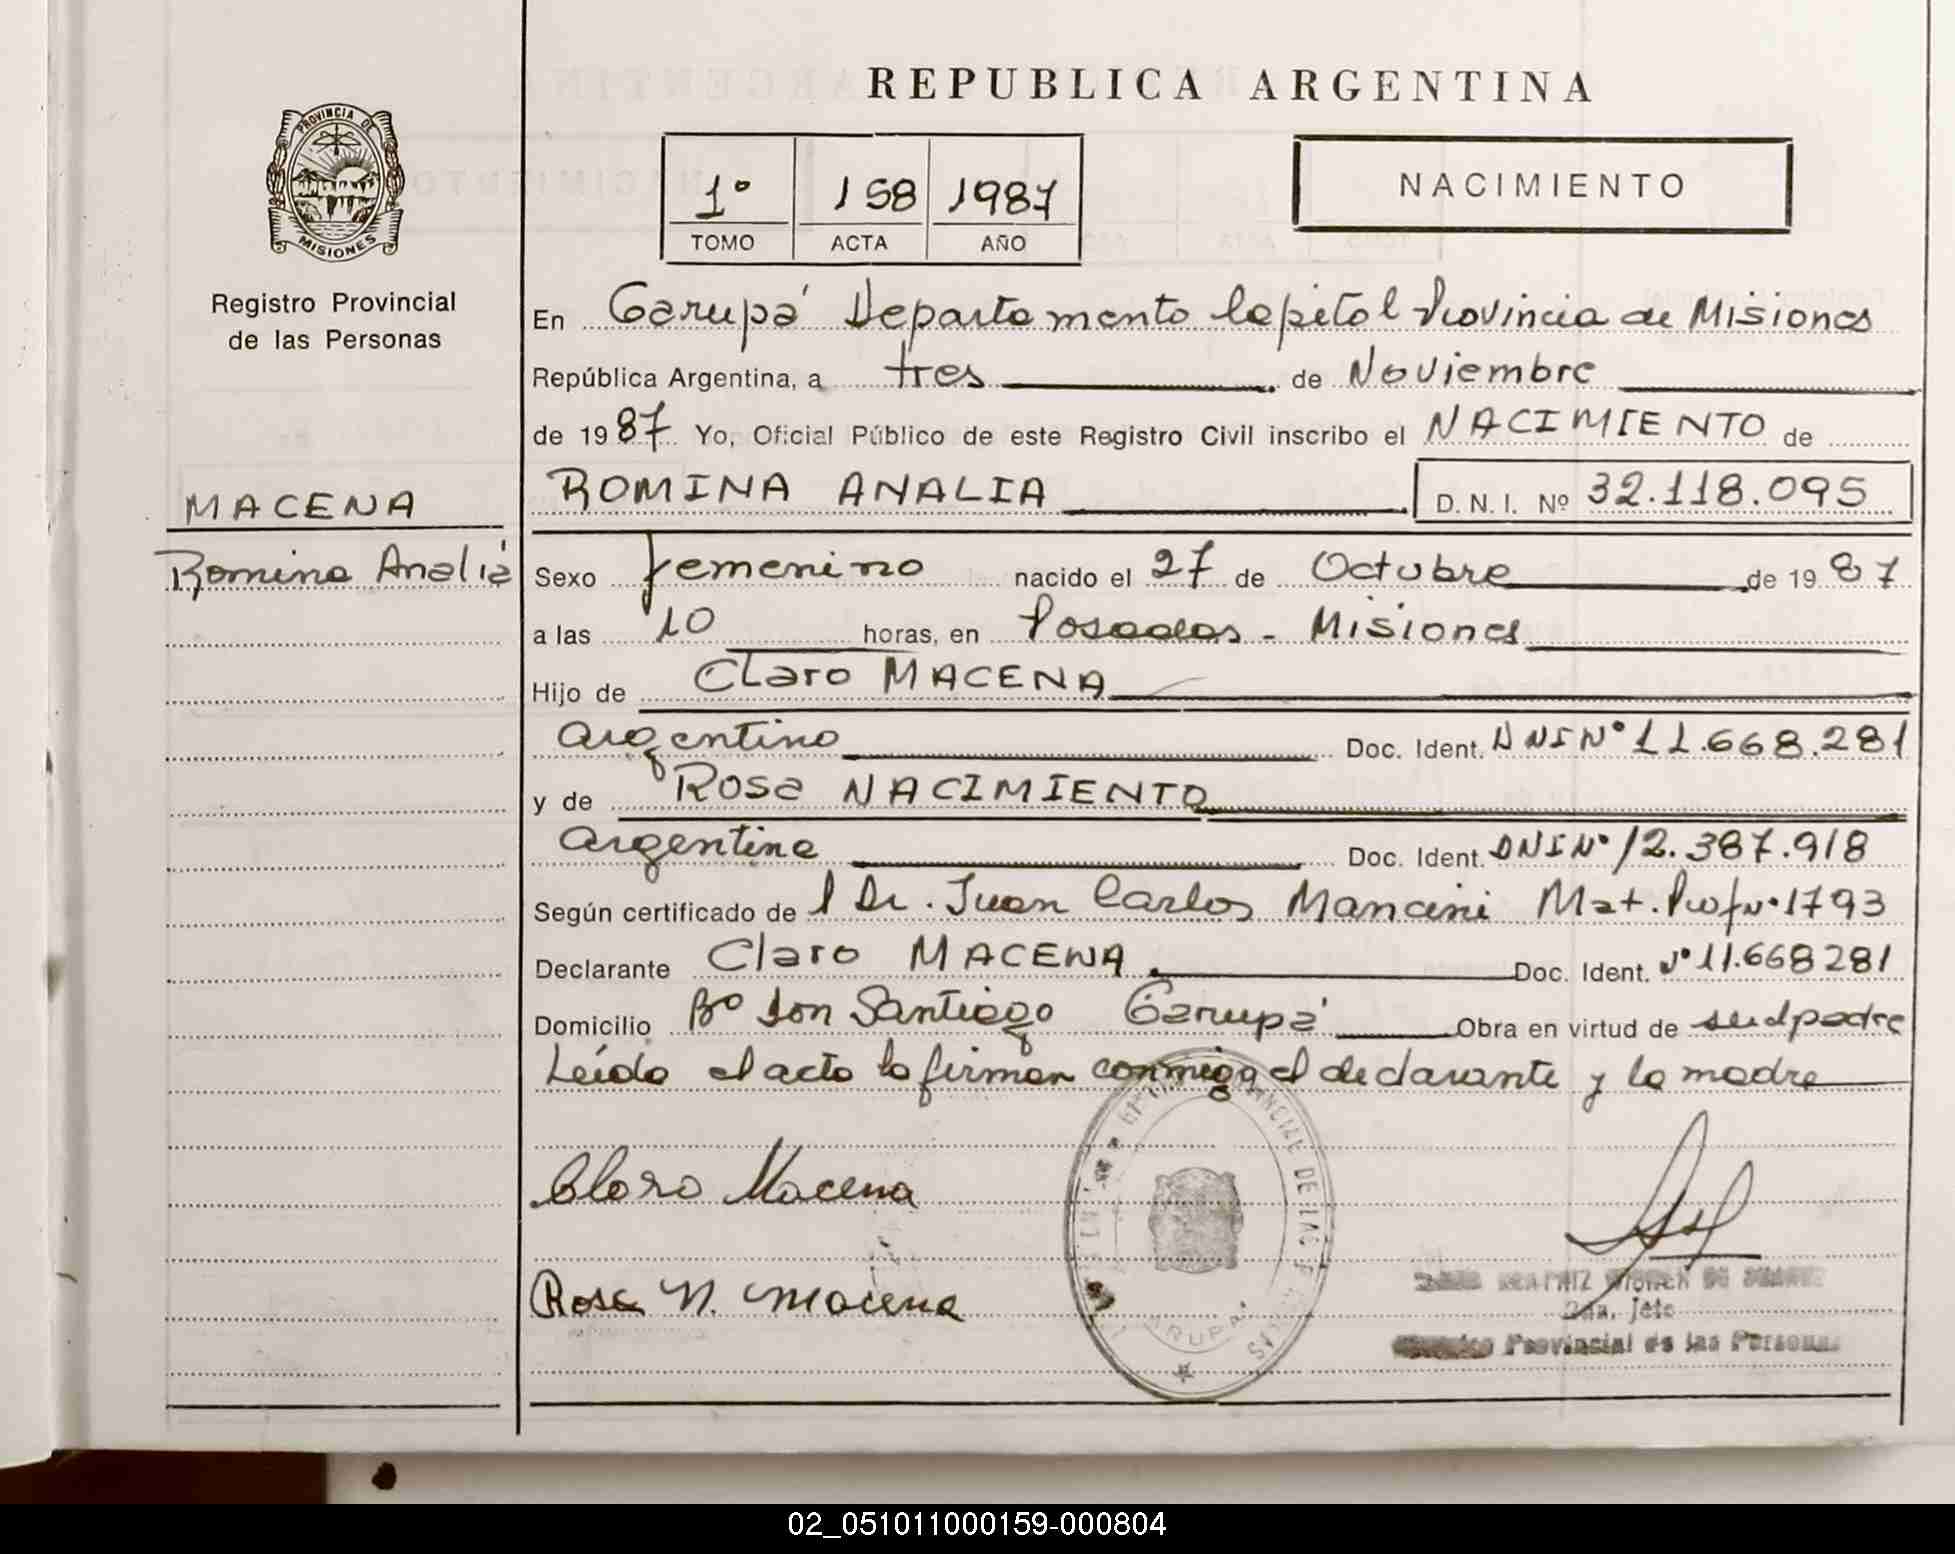 REPUBLICA ARGENTINA
PROVINCIA DE
MISIONES
Registro Provincial
de las Personas
1º 158 1987
TOMO ACTA AÑO
NACIMIENTO
En Garupá Departamento Capital Provincia de Misiones
República Argentina, a tres de Noviembre
de 1987 Yo, Oficial Público de este Registro Civil inscribo el NACIMIENTO de
MACENA
Romina Analia
ROMINA ANALIA D. N. I. Nº 32.118.095
Sexo femenino nacido el 27 de Octubre de 1987
a las 10 horas, en Posadas - Misiones
Hijo de Claro MACENA
argentino Doc. Ident. DNI Nº 11.668.281
y de Rosa NACIMIENTO
argentina Doc. Ident. DNI Nº 12.387.918
Según certificado de l Dr. Juan Carlos Mancini Mat. Prof Nº 1793
Declarante Claro MACENA Doc. Ident. Nº 11.668281
Domicilio Bº Don Santiago Garupá Obra en virtud de
Leída el acta la firman conmigo el declarante y la madre
Claro Macena
Rosa N. Macena
2da. Jefe
Provincial de las Personas
02_051011000159-000804